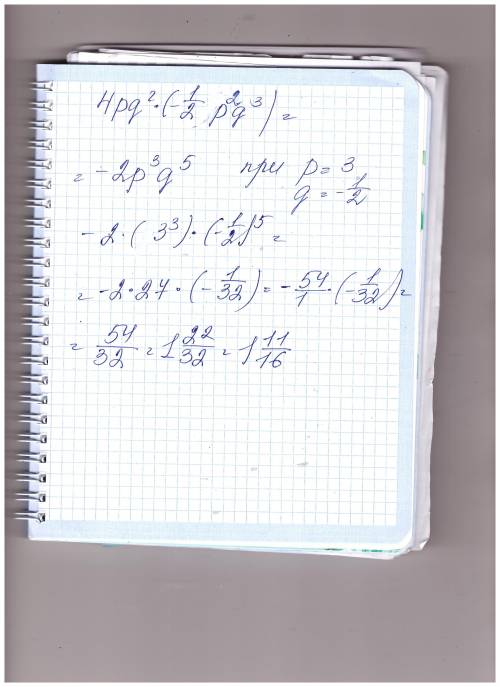 4pq² · (-1/2 p²q³) =
= -2p³q⁵ при p = 3
q = -1/2
-2 · (3³) · (-1/2)⁵ =
= -2 · 27 · (-1/32) = -54/1 · (-1/32) =
= 54/32 = 1 22/32 = 1 11/16